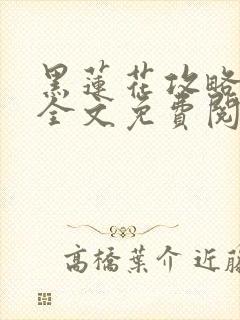 黑蓮花攻略
全文免費閱
高橋葉介 近藤